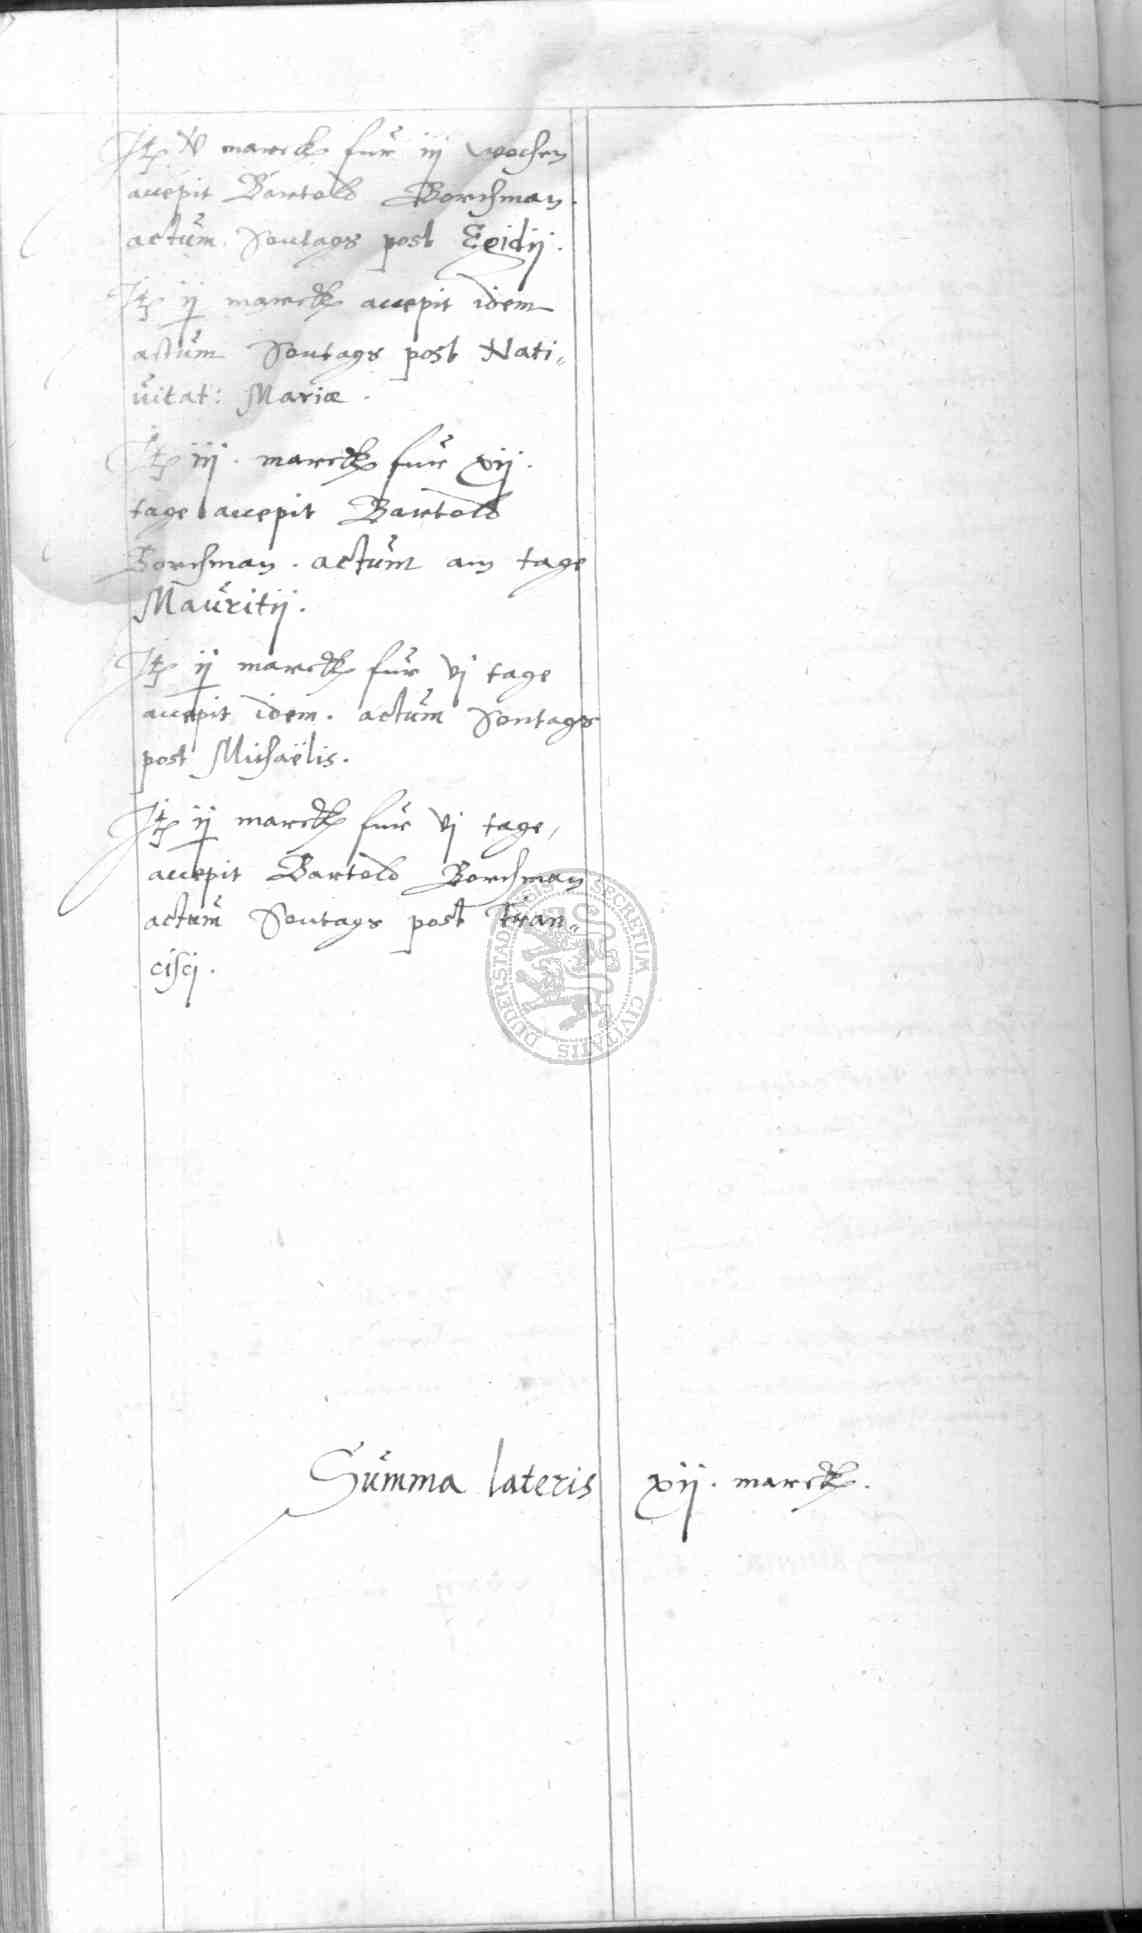 Itē v marck für iij wochen
accepit Bartold Borchman.
actum Sontags post Egidij.
Itē ij marck accepit idem
actum Sontags post Nati„
uitat: Mariæ.
Itē iij. marck für xij.
tage accepit Bartold
Borchman. actum am tage
Mauritij.
Itē ij marck für vj tage
accepit idem. actum Sontags
post Michaëlis.
Itē ij marck für vj tage,
accepit Bartold Borchman
actum Sontags post Fran„
cisci.
SECRETUM CIVITATIS DUDERSTADENSIS
Summa lateris xij. marck.